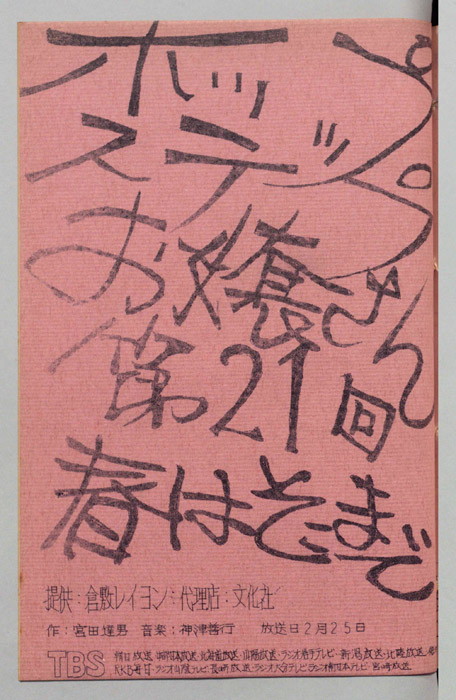 ホップ
ステップ
お嬢さん
第21回
春はそこまで
提供：倉敷レイヨン：代理店：文化社
作：宮田達男 音楽：神津善行 放送日2月25日
TBS 朝日放送・中部日本放送・北海道放送・山陽放送・ラジオ岩手テレビ・新潟放送・北陸放送
RKB毎日・ラジオ山陰テレビ・長崎放送・ラジオ大分テレビ・ラジオ南日本テレビ・宮崎放送